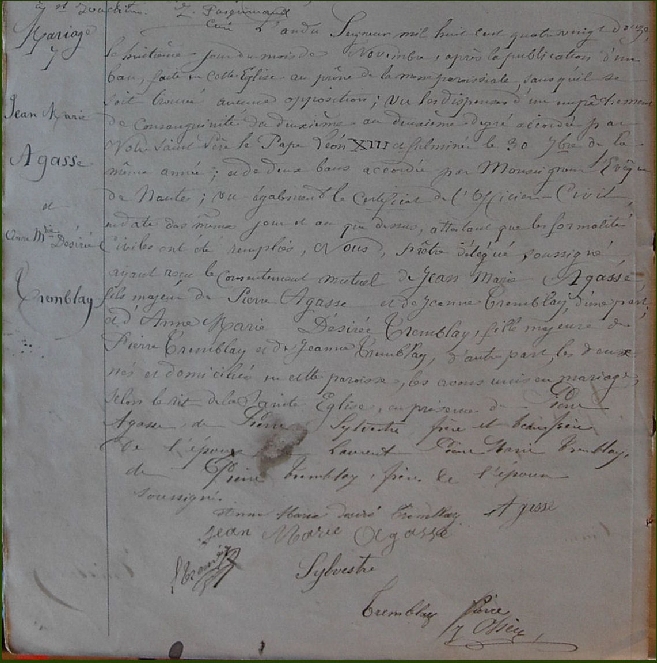 Mariage
Jean Marie
Agasse
et
Anne Mie Désirée
Tremblay
L'an du Seigneur mil huit cent quatre vingt douze,
le huitième jour du mois de Novembre, après la publication d'un
ban, faite en cette Eglise au prône de la messe paroissiale, sans qu'il se
soit trouvé aucune opposition; Vu les dispenses d'un empêchement
de Consanguinité du deuxième au deuxième degré accordée par
Notre Saint Père le Pape Léon XIII et fulminée le 30 7bre de la
même année; et de deux bans accordée par Monseigneur l'Evêque
de Nantes; vu également le Certificat de l'Officier Civil
en date du même jour et an que dessus, attestant que les formalités
Civiles ont été remplies, Nous, prêtre délégué soussigné
ayant reçu le Consentement mutuel de Jean Marie Agasse,
fils majeur de Pierre Agasse et de Jeanne Tremblay, d'une part;
et d'Anne Marie Désirée Tremblay, fille majeure de
Pierre Tremblay et de Jeanne Tremblay, d'autre part, les deux
nés et domiciliés en cette paroisse, les avons unis en mariage,
selon le rit de la Sainte Eglise, en présence de Pierre
Agasse, de Pierre Sylvestre frère et beau frère
de l'époux Laurent Pierre Marie Tremblay
de Pierre Tremblay, frère de l'épouse
soussignés.
Anne Marie Desiré Tremblay Agasse
Jean Marie Agasse
Sylvestre
Tremblay Pierre